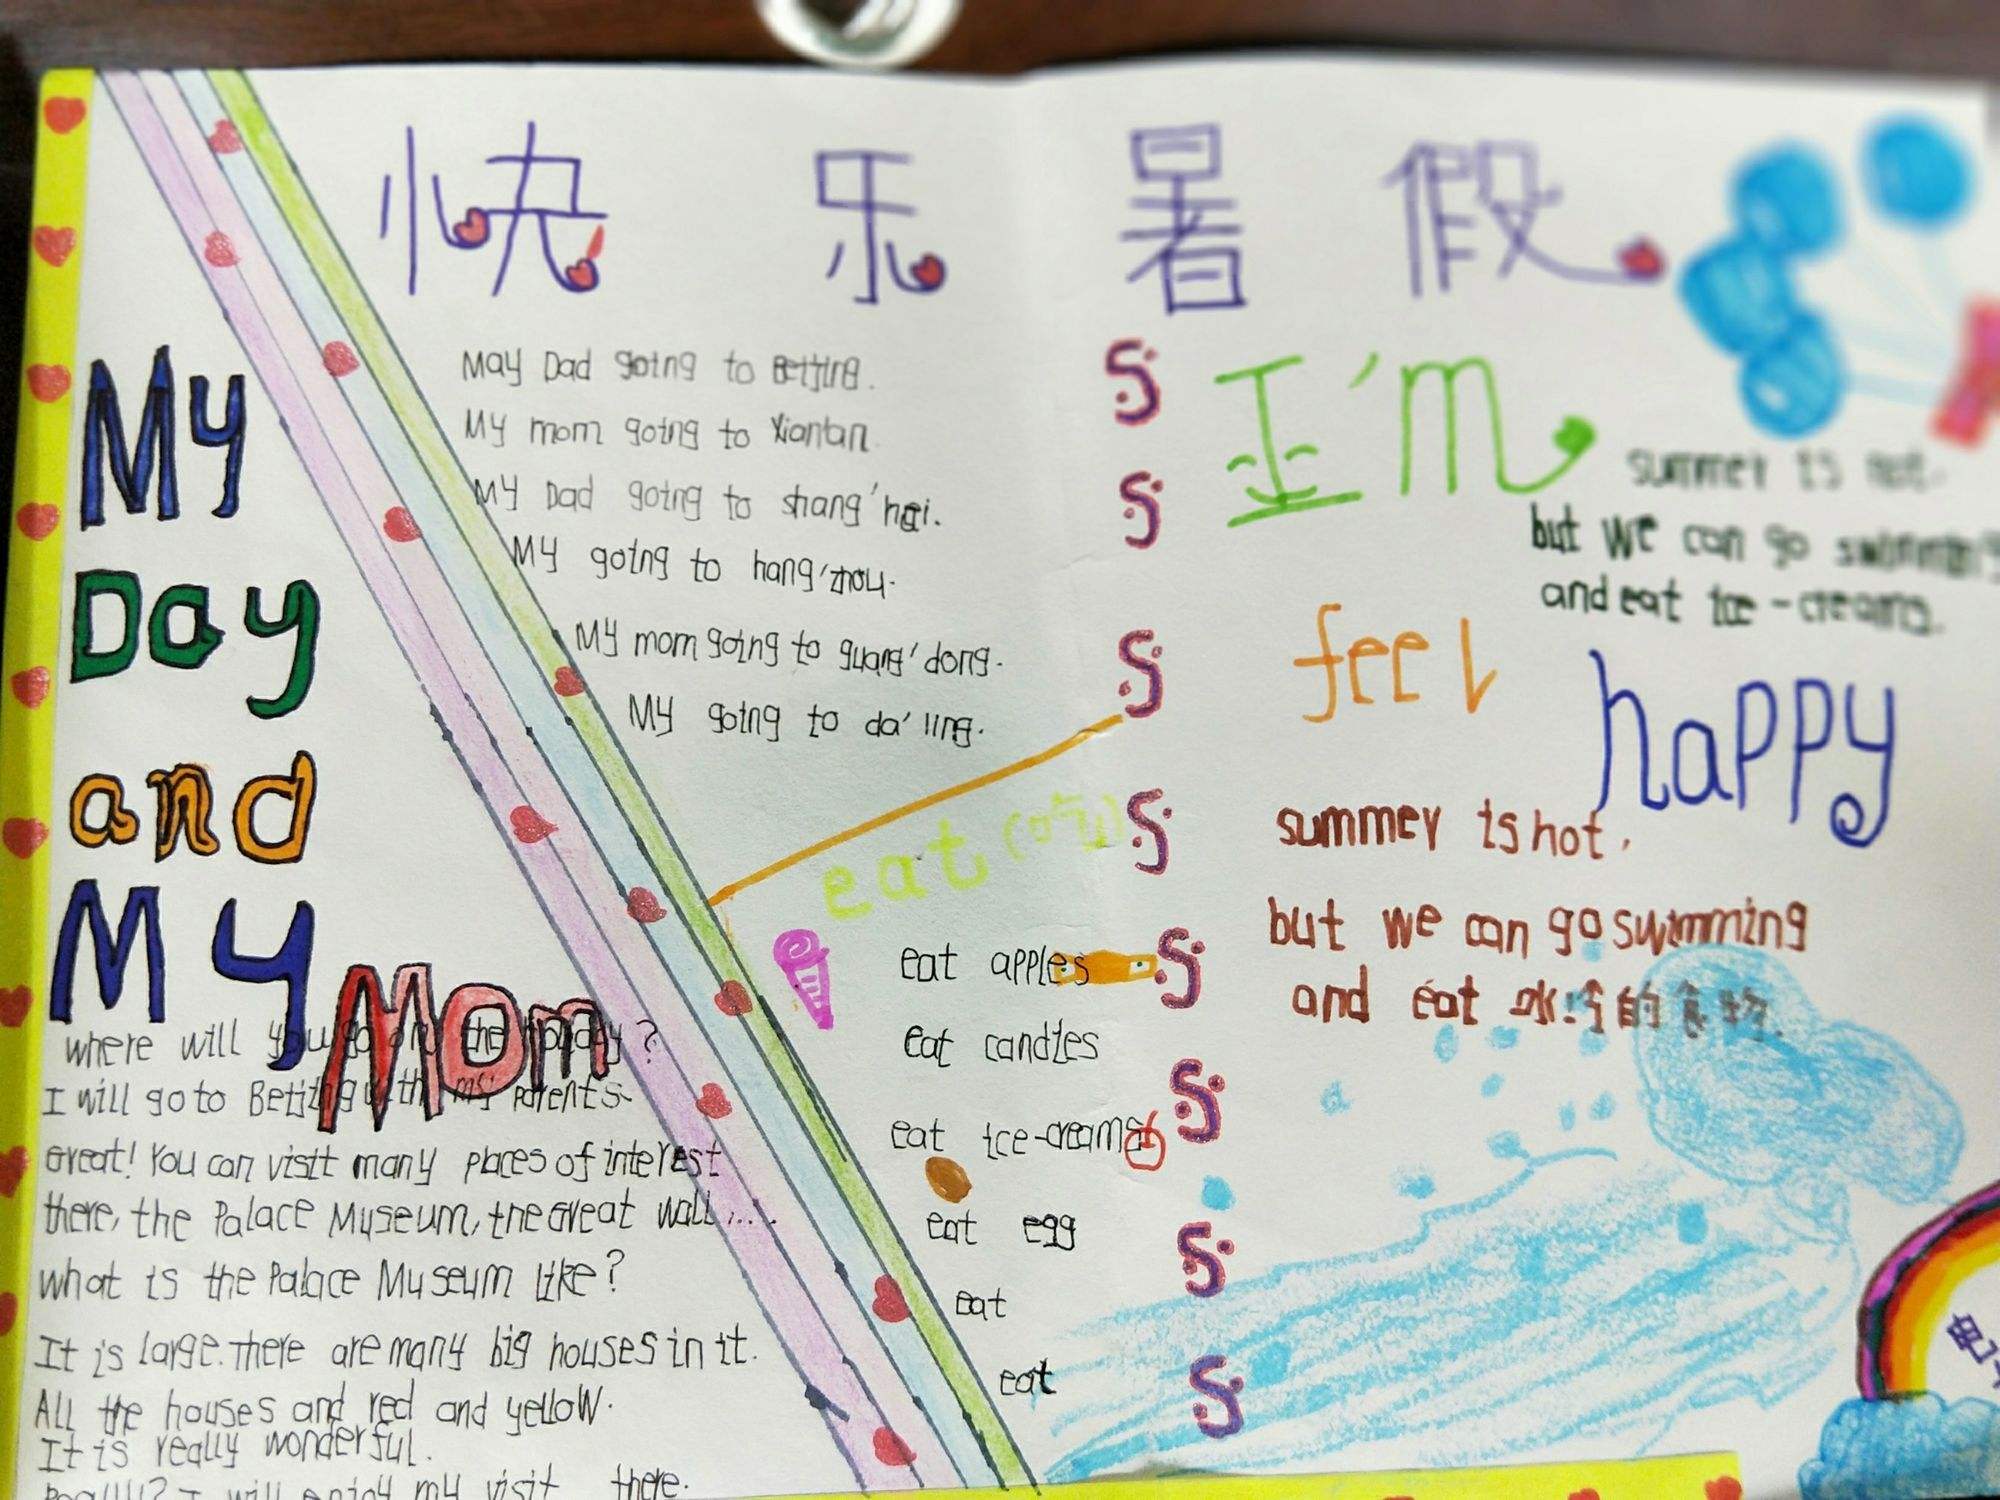 快乐暑假
My
Day
and
My
Mom
May Dad going to Beijing.
My mom going to Xiantan.
My Dad going to shang'hai.
My going to hang'zhou.
My mom going to guang'dong.
My going to da'ling.
eat (吃)
eat apples
eat candies
eat ice-creams
eat egg
eat
eat
I'm
feel
happy
summer is hot.
but we can go swimming
and eat ice-creams.
summer is hot.
but we can go swimming
and eat 冰冷的食物.
where will you go on the holiday?
I will go to Beijing with my parents.
Great! You can visit many places of interest
there, the Palace Museum, the Great wall....
what is the Palace Museum like?
It is large. There are many big houses in it.
All the houses and red and yellow.
It is really wonderful.
Really? I will enjoy my visit there.